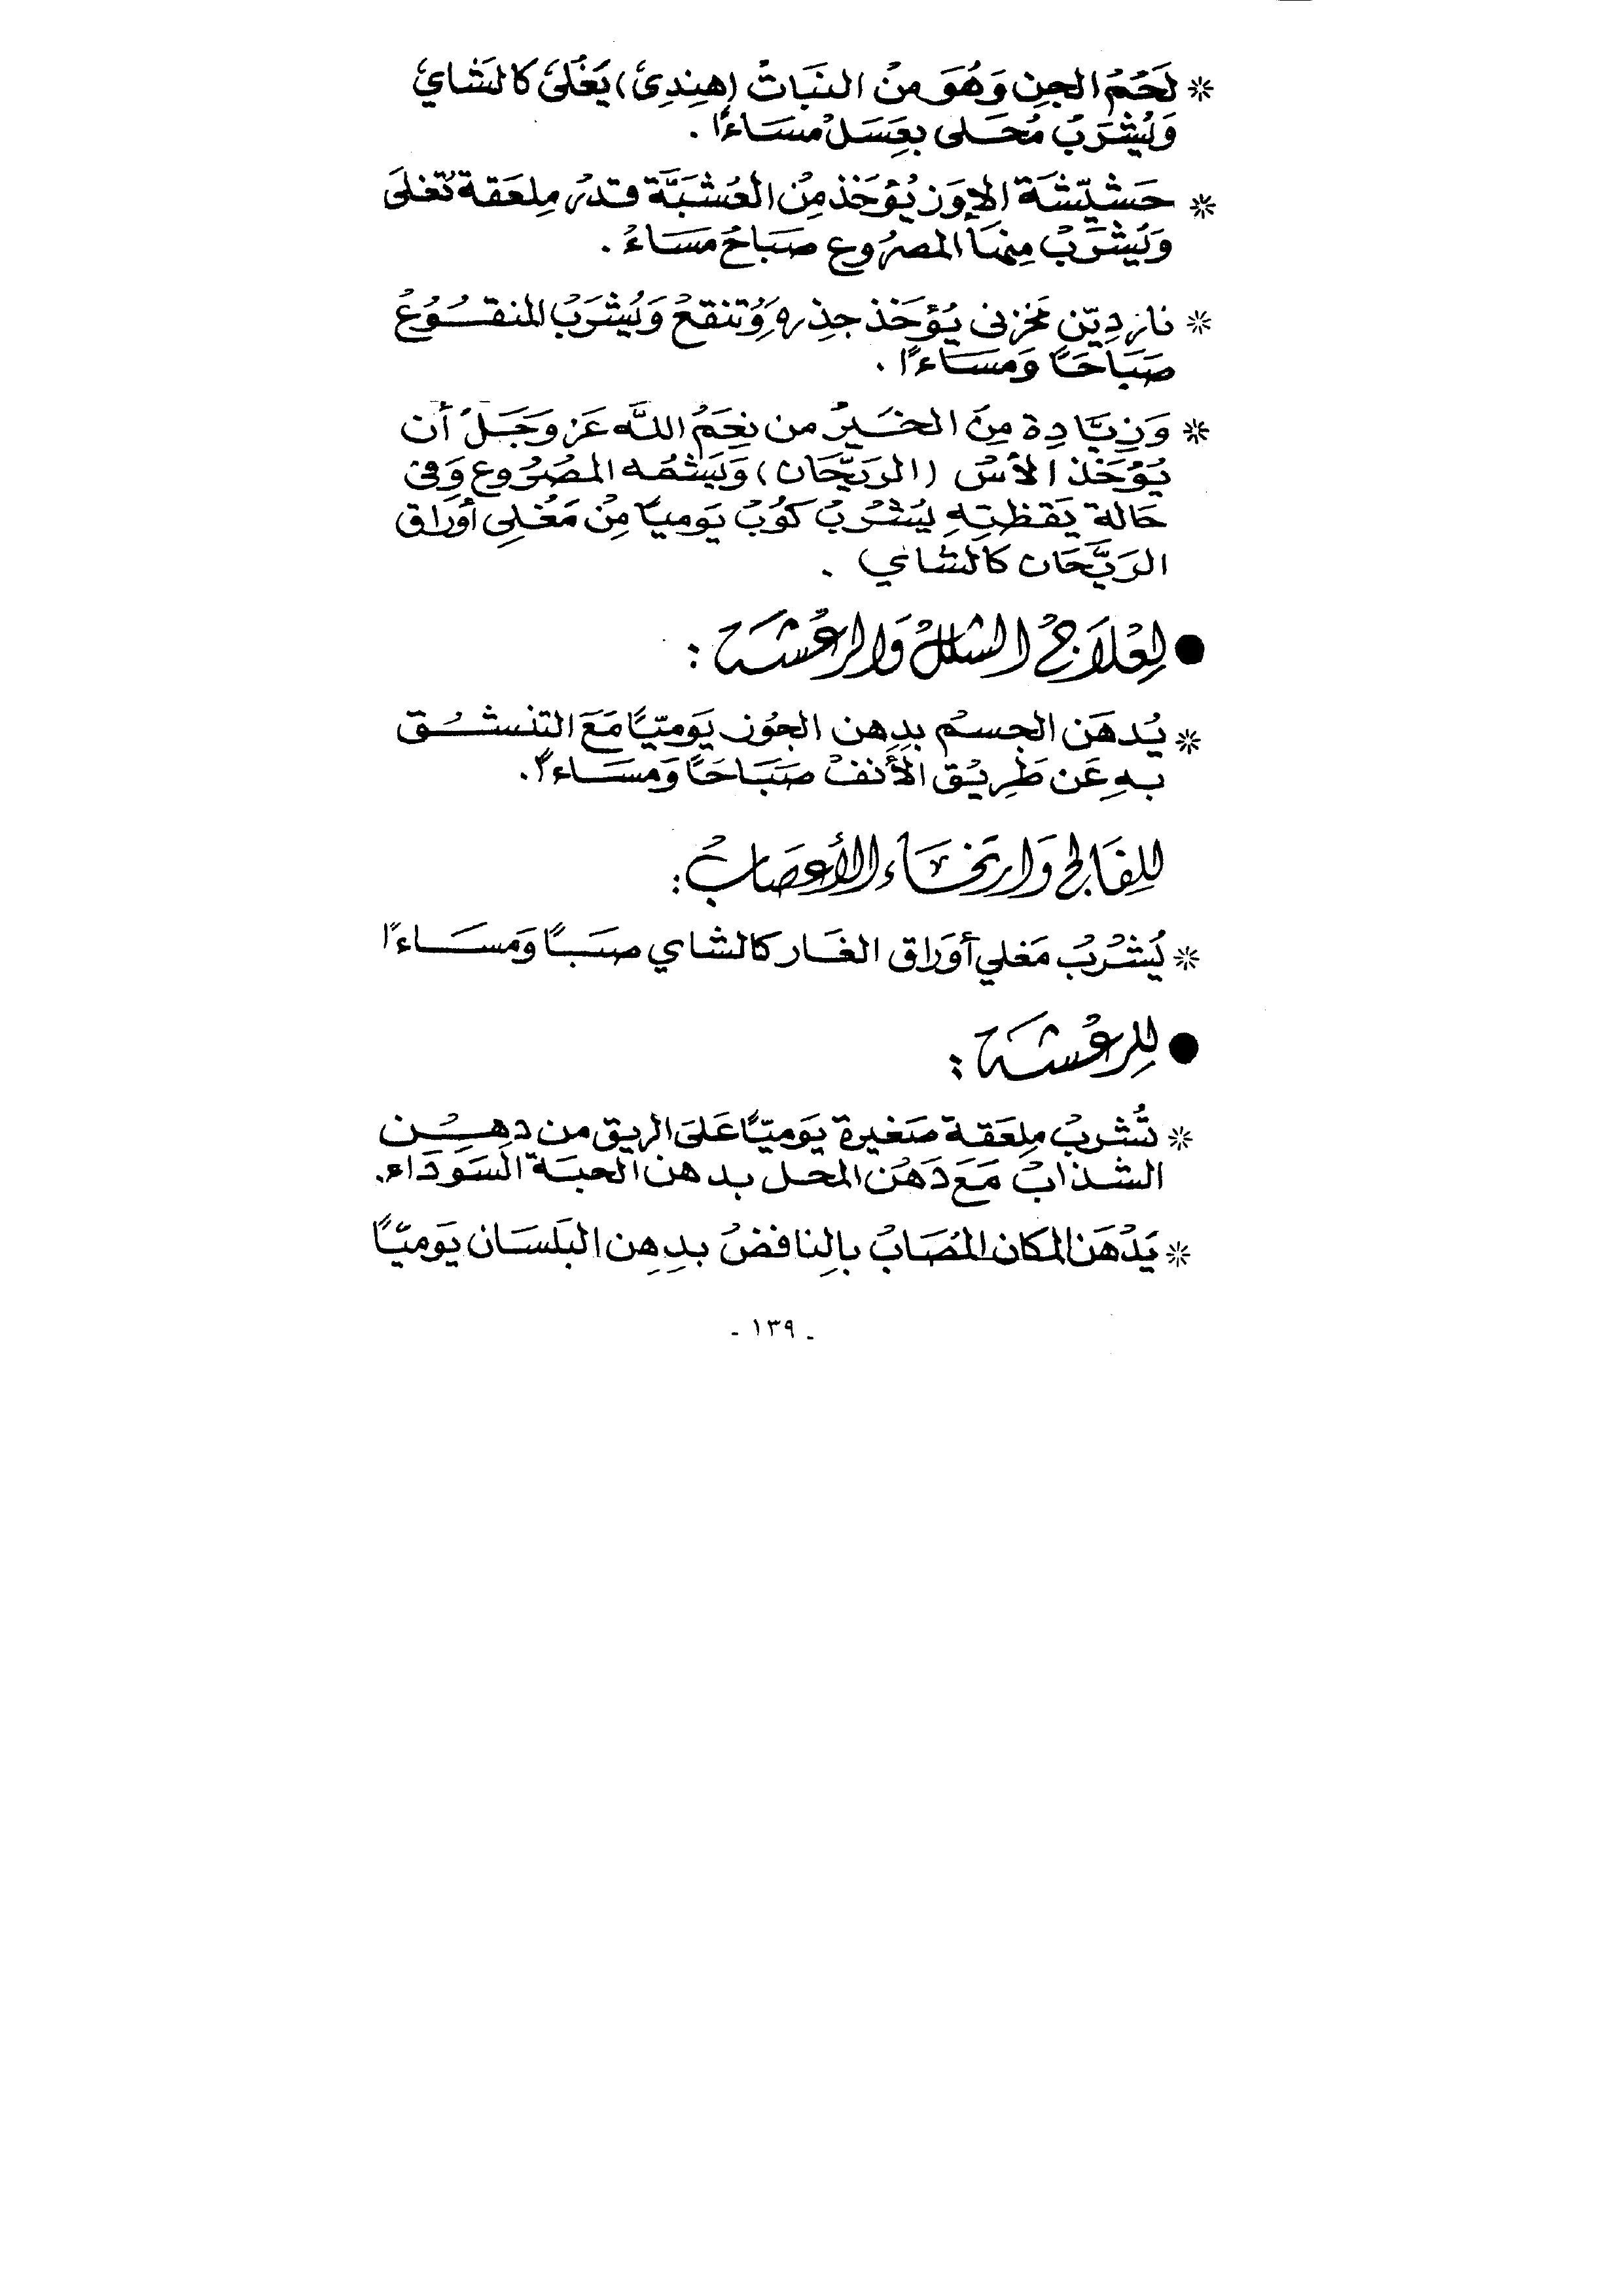 * لَحمُ الجن وَهُوَ مِنْ النَبَاتْ (هِندِيَّ) يَغْلَىَ كَالشَايَ
وَيُشْرَبُ مُحَلى بعَسَلْ مسَاءًا .
* حَشيّشَة الإوَز يُؤخَذ مِنْ العُشبَّة قدرُ مِلعَقة تُغلىَ
وَيُشْرَبْ مِنهَا المصرُوع صَبَاحُ مسَاءُ .
* نارديّن مَخزنى يُؤخَذ جِذره وَتنقعْ وَيُشْرَبُ المنقــوُعْ
صَبَاحًا وَمسَاءًا .
* وَزِيَّادِة مِنَ الخَـيرُ من نِعَمُ اللَّه عَز وَجَلَ أن
يُؤخَذ الآسْ (الريَّحَان) وَيَشمُه المصُرُوع وَفى
حَالة يَقظتِهِ يُشْرَبُ كوُبُ يَوميًا مِنْ مَغلى أوَراق
الريَّحَان كالشاي .
● لِعْلَاجُ الشللْ وَالرعُشَـة :
* يُدهَن الجسمُ بدِهن الجوُز يَوميّيًا مَعَ التنسشُـق
بهِ عَن طَرِيُق الأنفْ صَبَاحًا وَمسَاءً.
للِفَالج وَارتخَـاء الأعصَابُ :
* يُشرُبُ مَغلي أوَراق الغَار كالشاي صبَـًا وَمسَاءًا
● للِرعُشَـة :
* تُشربُ مِلعَقـة صَغيرة يَوميّيًا عَلىَ الريق من دهِـُـن
الشذابْ مَعَ دَهُن المحل بدهن الحبَـة السَوَدَاء.
* يَدْهَن المكان المُصَابُ بالِنافضُ بدِهِن البَلسَان يَوميّيًا
- ١٣٩ -